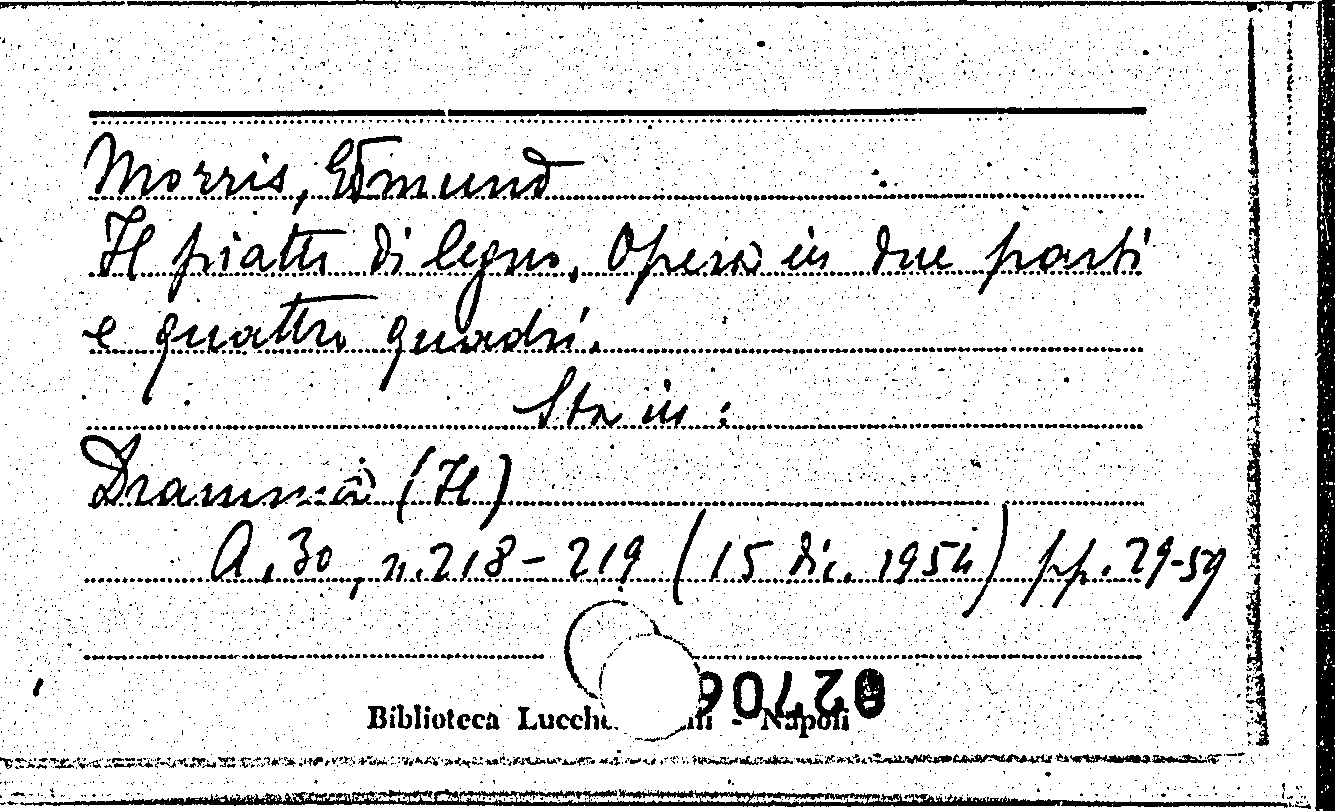 Morris, Edmund
Il piatto di legno, Opera in due parti
e quattro quadri.
Sta in:
Dramma (Il)
A. 30, n. 218-219 (15 dic. 1954) pp. 29-59
Biblioteca Lucche - Napoli